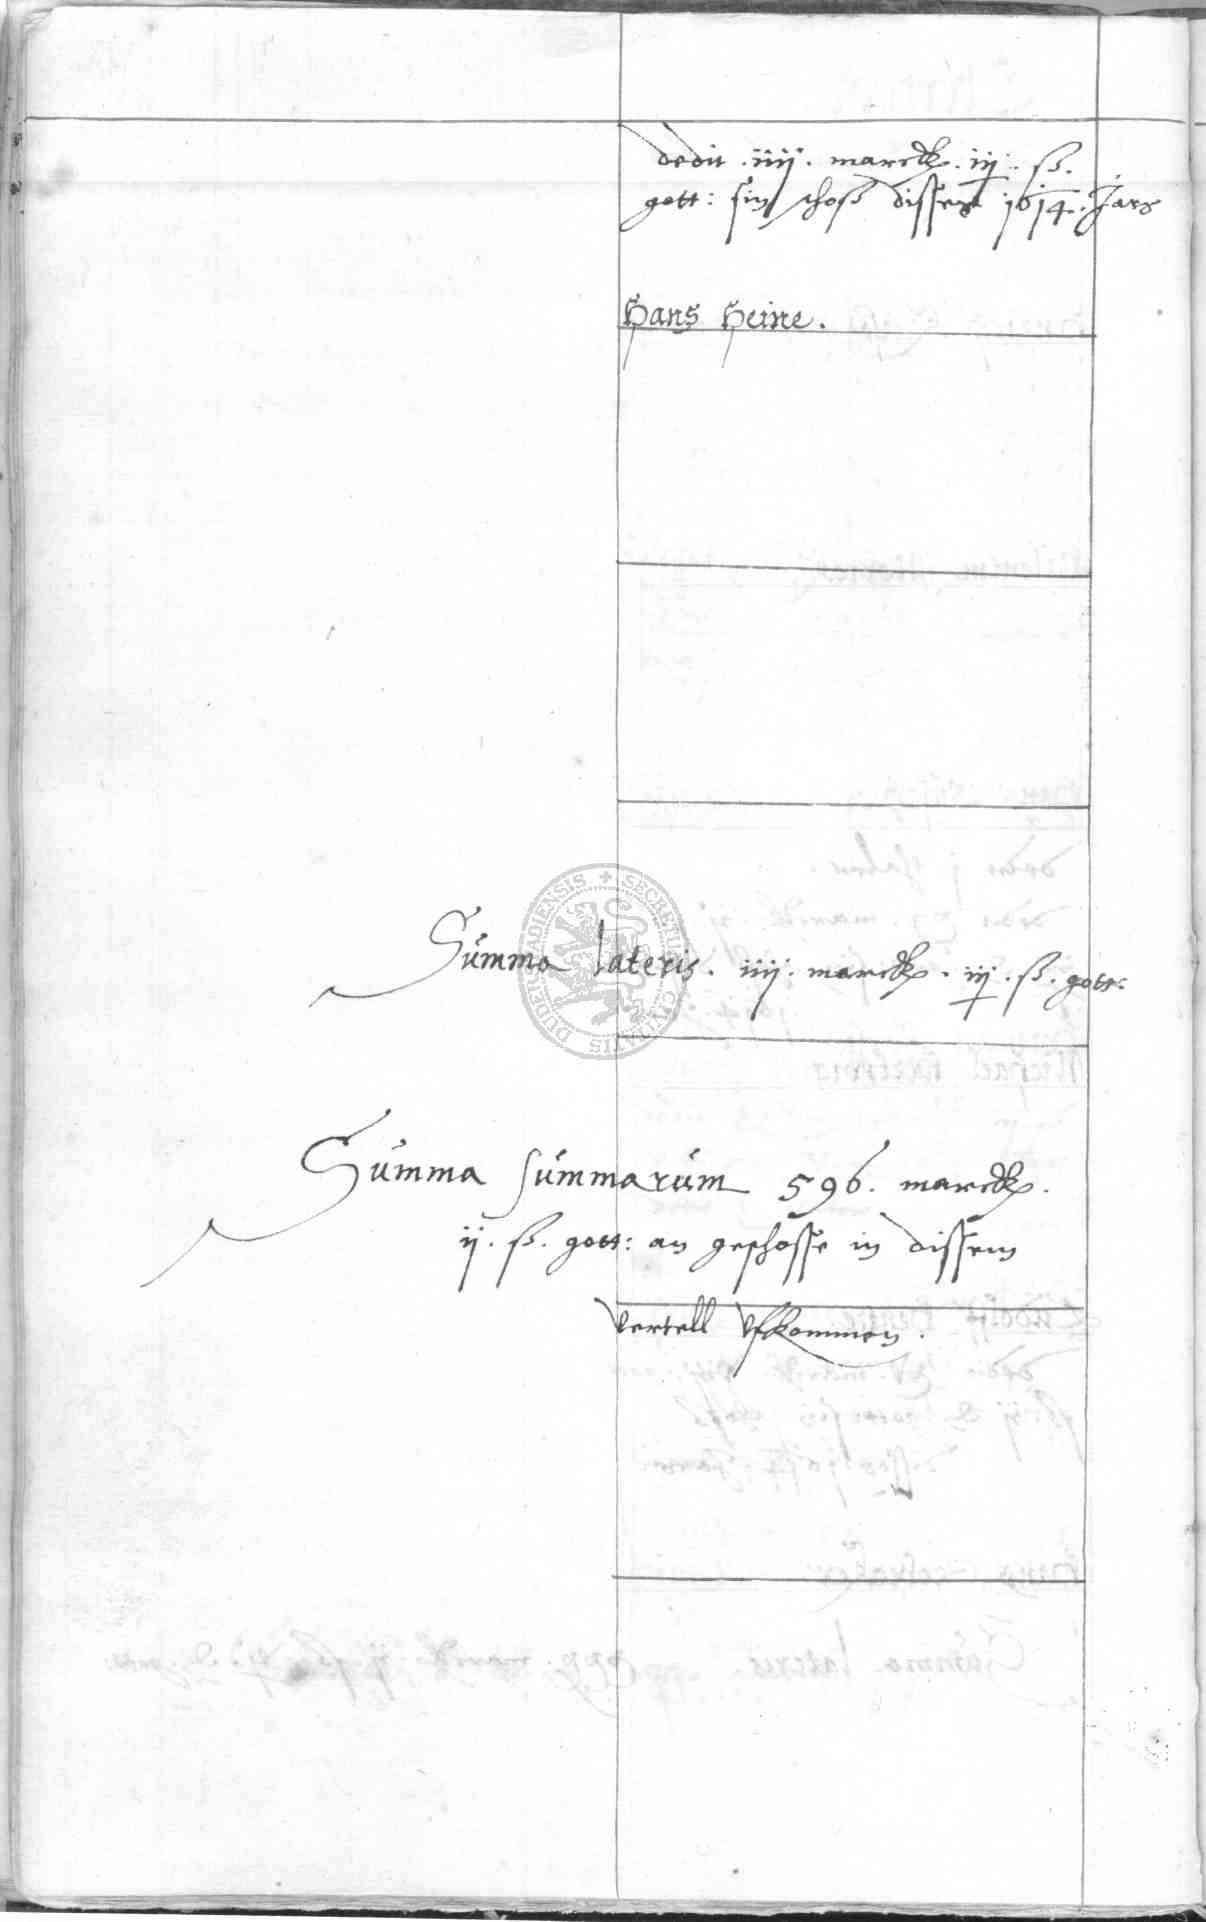 dedit .iiij. marck. iij. ß.
gott: sin schoß disses 1614. Jars
Hans Heine.
SECRETUM CIVITATIS DUDERSTADIENSIS
Summa lateris. iiij. marck. iij. ß. gott:
Summa summarum 596. marck.
ij. ß. gott: an geschosse in dissem
vertell vfkommen.